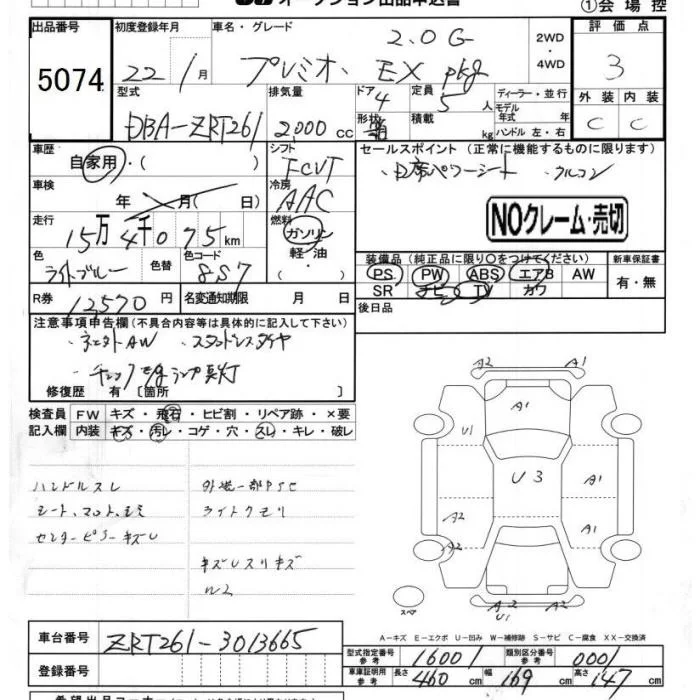 オークション出品申込書 ①会場控
出品番号 初度登録年月 車名・グレード 2WD・4WD 評価点
5074 22 1月 プレミオ、 2.0G EX pkg 3
型式 排気量 ドア 4 定員 5人 ディーラー・並行 外装 内装
DBA-ZRT261 2000cc 形状 積載 kg モデル年式 年 ハンドル 左・右 C C
車歴 シフト セールスポイント (正常に機能するものに限ります)
自家用・( ) FCVT ・P席パワーシート ・ウルコン
車検 冷房
年 月( 日) AAC
走行 燃料 NOクレーム・売切
15万4千075km ガソリン・軽油・
色 色替 色コード 装備品(純正品に限り○をつけてください) 新車保証書
ライトブルー 8S7 PS PW ABS エアB AW 有・無
SR ナビ TV カワ
R券 12570円 名変通知期限 月 日 後日品
注意事項申告欄(不具合内容等は具体的に記入して下さい)
AW スタッドレスタイヤ
ランプ点灯
修復歴 有〔箇所 〕
検査員 FW キズ・飛石・ヒビ割・リペア跡・×要
記入欄 内装 キズ・汚レ・コゲ・穴・スレ・キレ・破レ
ハンドルスレ 外装一部
シート、マット、シミ ライトクモリ
センターピラーキズU
キズUスリキズ
W2
A2 A1
A1
U1
U3 A1
A2 A1
A2
A2 A2
U1
スペア
A-キズ E-エクボ U-凹み W-補修跡 S-サビ C-腐食 XX-交換済
車台番号 ZRT261-3013665
型式指定番号 参考 16001 類別区分番号 参考 0001
登録番号 車庫証明用 参考 長さ 460cm 幅 169cm 高さ 147cm